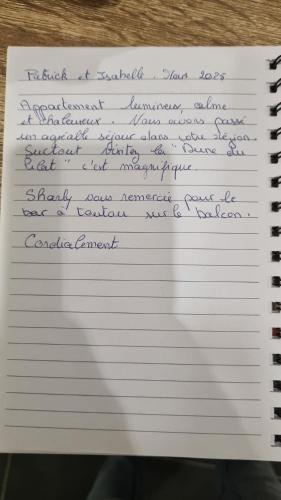 Patrick et Isabelle. Mars 2025
Appartement lumineux, calme
et chaleureux. Nous avons passé
un agréable séjour dans votre région.
Surtout la "Dune du
Pilat" c'est magnifique.
Sharly vous remercie pour le
bar à toutou sur le balcon.
Cordialement